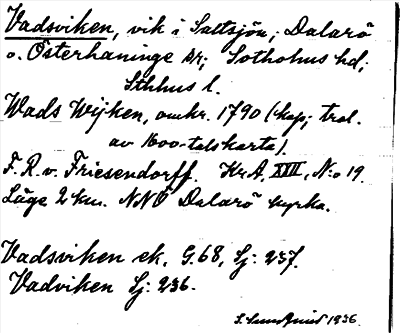 Vadsviken, vik i Saltsjön; Dalarö
o. Österhaninge sn; Sotholms hd;
Sthlms l.
Wads Wijken, omkr. 1790 (kop; trol.
av 1600-talskarta).
F. R. v. Friesendorff. Kr.A. XVII, N:o 19.
Läge 2 km. NNO Dalarö kyrka.
Vadsviken ek. G.68, Sj: 237.
Vadviken Sj: 236.
1936.